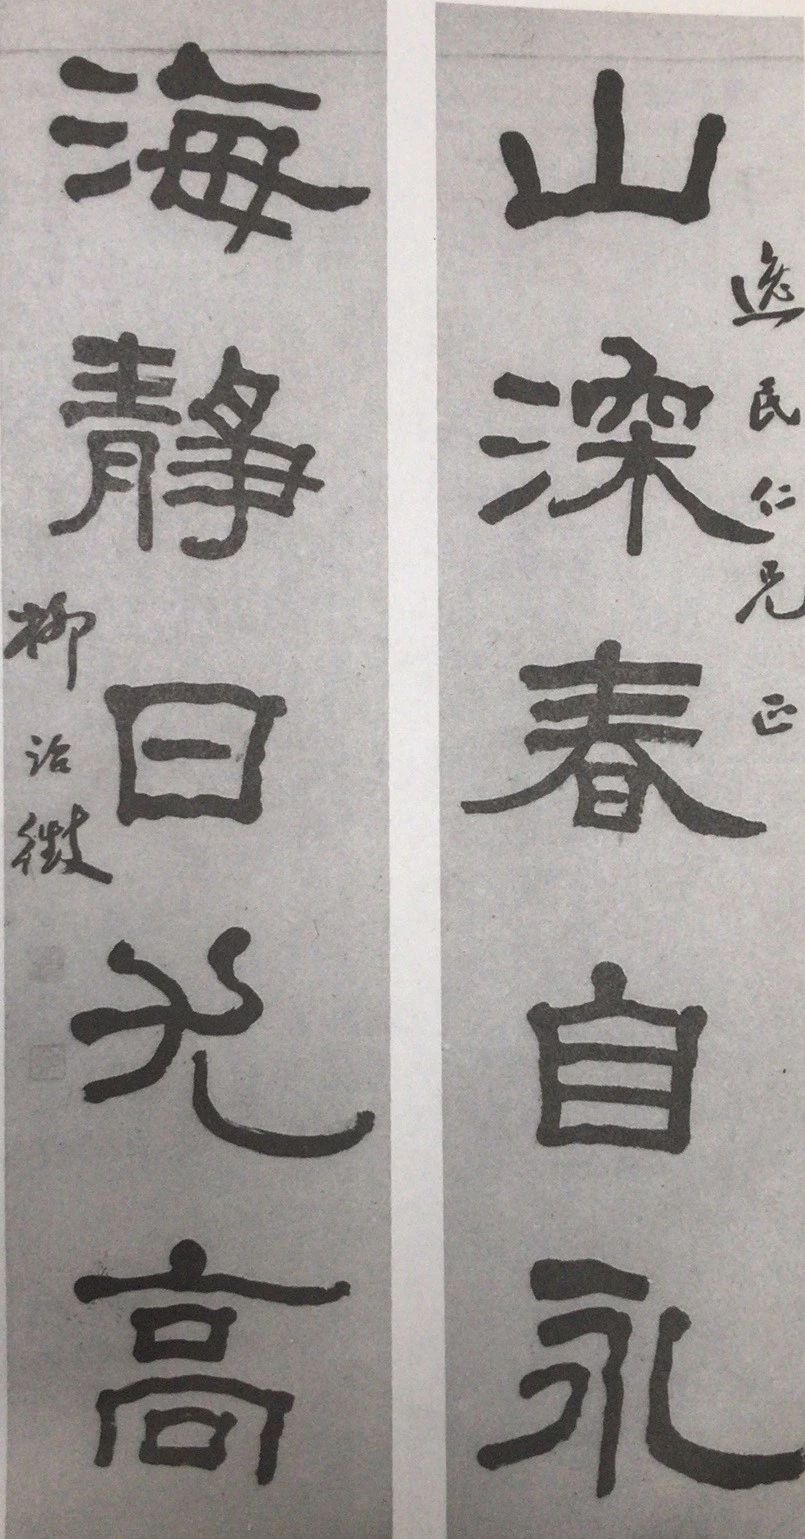 山深春自永
逸民仁兄 正
海靜日光高
柳詒徵